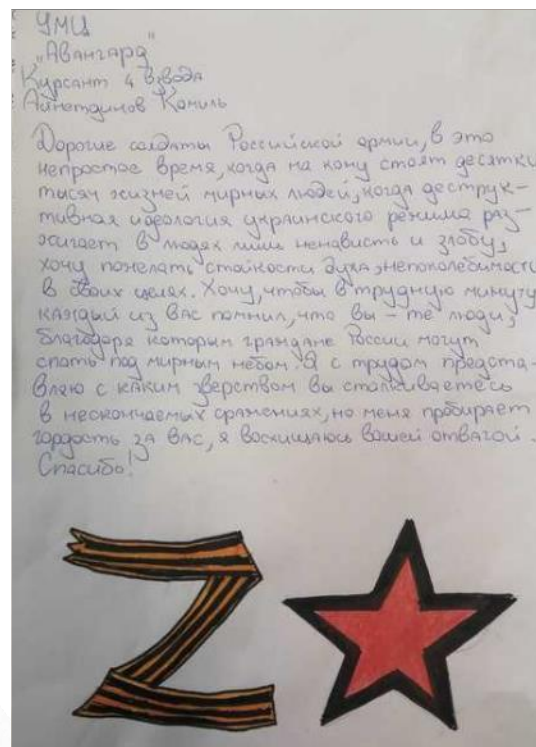 УМЦ
„Авангард"
Курсант 4 взвода
Айнетдинов Камиль
Дорогие солдаты Российской армии, в это
непростое время, когда на кону стоят десятки
тысяч жизней мирных людей, когда деструк-
тивная идеология украинского режима раз-
жигает в людях лишь ненависть и злобу,
хочу пожелать стойкости духа, непоколебимости
в своих целях. Хочу, чтобы в трудную минуту
каждый из вас помнил, что вы - те люди,
благодаря которым граждане России могут
спать под мирным небом. Я с трудом предста-
вляю с каким зверством вы сталкиваетесь
в нескончаемых сражениях, но меня пробирает
гордость за вас, я восхищаюсь вашей отвагой.
Спасибо!
Z